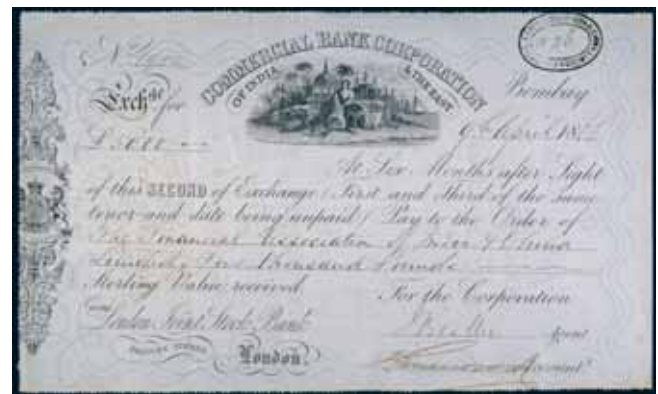 COMMERCIAL BANK CORPORATION
OF INDIA & THE EAST.
Exch.ge for
Bombay
£5000
9th April 18
At Six Months after Sight
of this SECOND of Exchange (First and Third of the same
tenor and date being unpaid) Pay to the Order of
The Financial Association of India & China
Limited, Five Thousand Pounds
Sterling Value received.
For the Corporation
London Joint Stock Bank
London